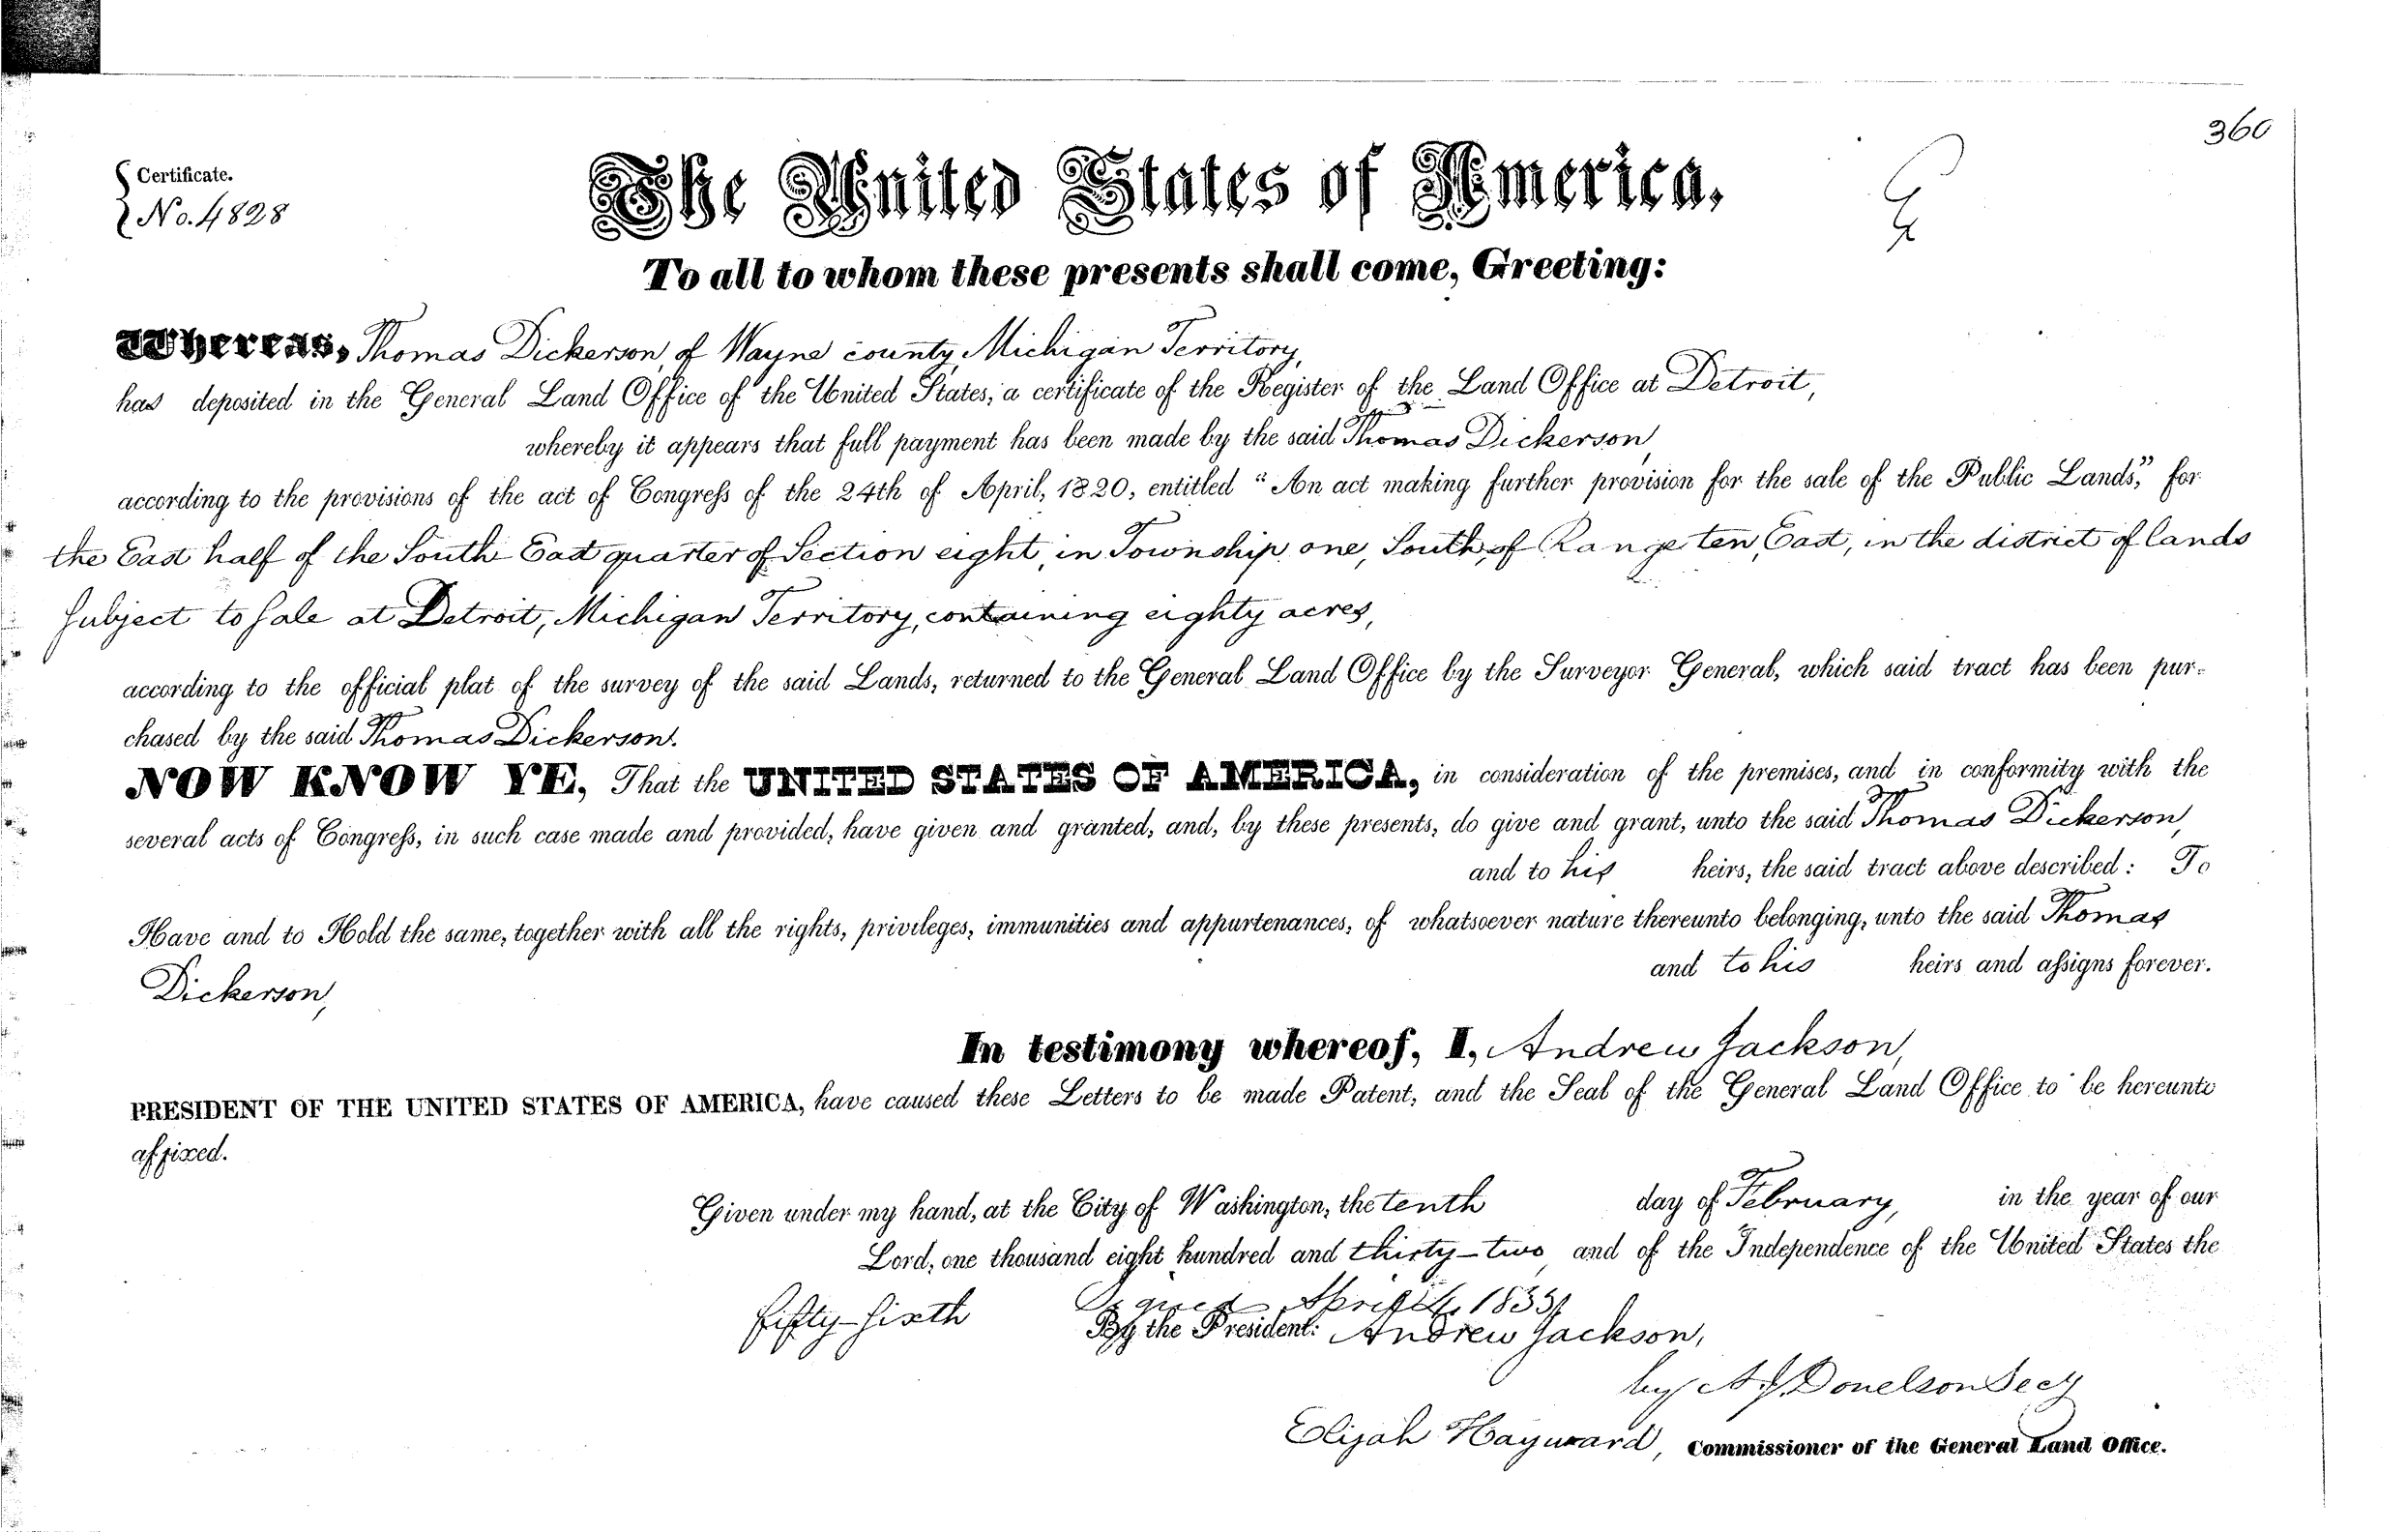 360
Certificate.
No. 4828
The United States of America,
To all to whom these presents shall come, Greeting:
Whereas, Thomas Dickerson, of Wayne county, Michigan Territory,
has deposited in the General Land Office of the United States, a certificate of the Register of the Land Office at Detroit,
whereby it appears that full payment has been made by the said Thomas Dickerson,
according to the provisions of the act of Congress of the 24th of April, 1820, entitled "An act making further provision for the sale of the Public Lands," for
the East half of the South East quarter of Section eight, in Township one, South, of Range ten, East, in the district of lands
Subject to Sale at Detroit, Michigan Territory, containing eighty acres,
according to the official plat of the survey of the said Lands, returned to the General Land Office by the Surveyor General, which said tract has been pur-
chased by the said Thomas Dickerson.
NOW KNOW YE, That the UNITED STATES OF AMERICA, in consideration of the premises, and in conformity with the
several acts of Congress, in such case made and provided, have given and granted, and, by these presents, do give and grant, unto the said Thomas Dickerson,
and to his heirs, the said tract above described: To
Have and to Hold the same, together with all the rights, privileges, immunities and appurtenances, of whatsoever nature thereunto belonging, unto the said Thomas
Dickerson, and to his heirs and assigns forever.
In testimony whereof, I, Andrew Jackson,
PRESIDENT OF THE UNITED STATES OF AMERICA, have caused these Letters to be made Patent, and the Seal of the General Land Office to be hereunto
affixed.
Given under my hand, at the City of Washington, the tenth day of February, in the year of our
Lord, one thousand eight hundred and thirty-two and of the Independence of the United States the
fifty-sixth Signed April 1833,
By the President: Andrew Jackson,
by A. J. Donelson Secy
Elijah Hayward, Commissioner of the General Land Office.